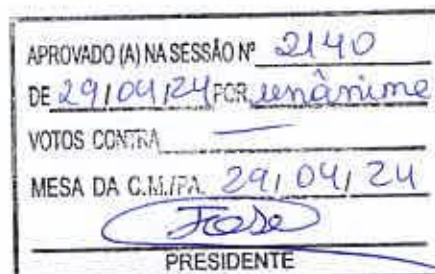 APROVADO (A) NA SESSÃO Nº 2140
DE 29/04/24 POR unânime
VOTOS CONTRA —
MESA DA C.M./PA. 29/04/24
PRESIDENTE